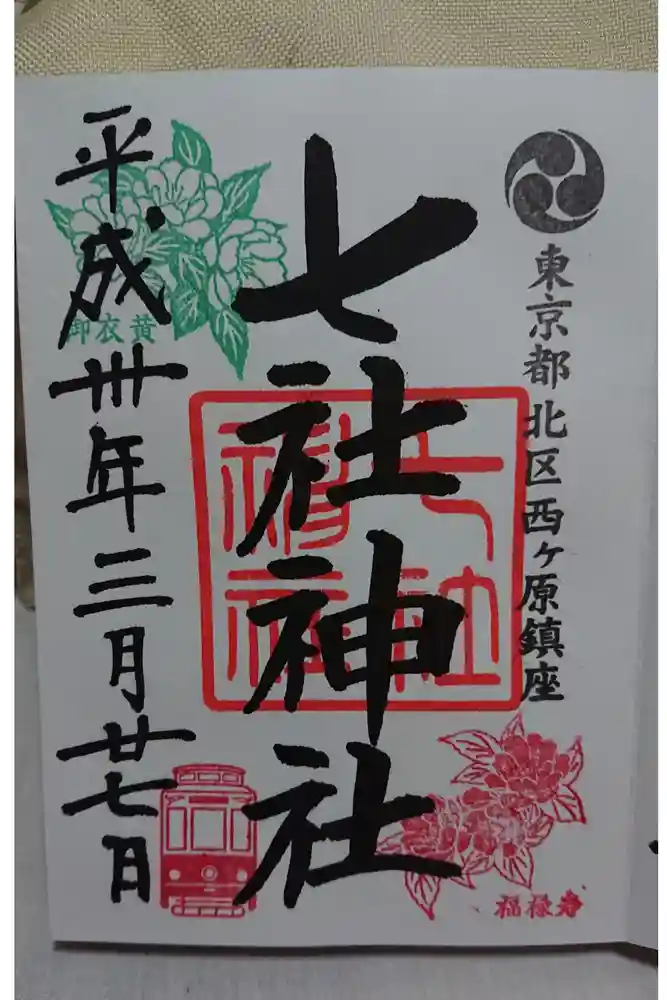 東京都北区西ヶ原鎮座
七社神社
七社
神社
福禄寿
御衣黄
平成卅年三月廿七日